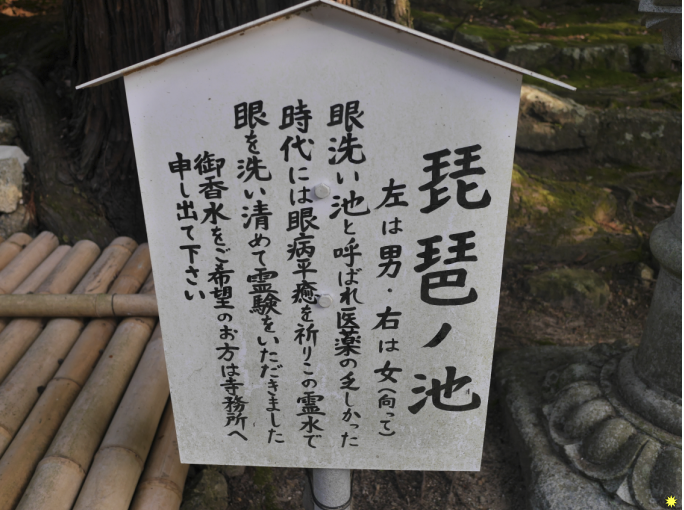 琵琶ノ池
左は男・右は女(向って)
眼洗い池と呼ばれ医薬の乏しかった
時代には眼病平癒を祈りこの霊水で
眼を洗い清めて霊験をいただきました
御香水をご希望のお方は寺務所へ
申し出て下さい